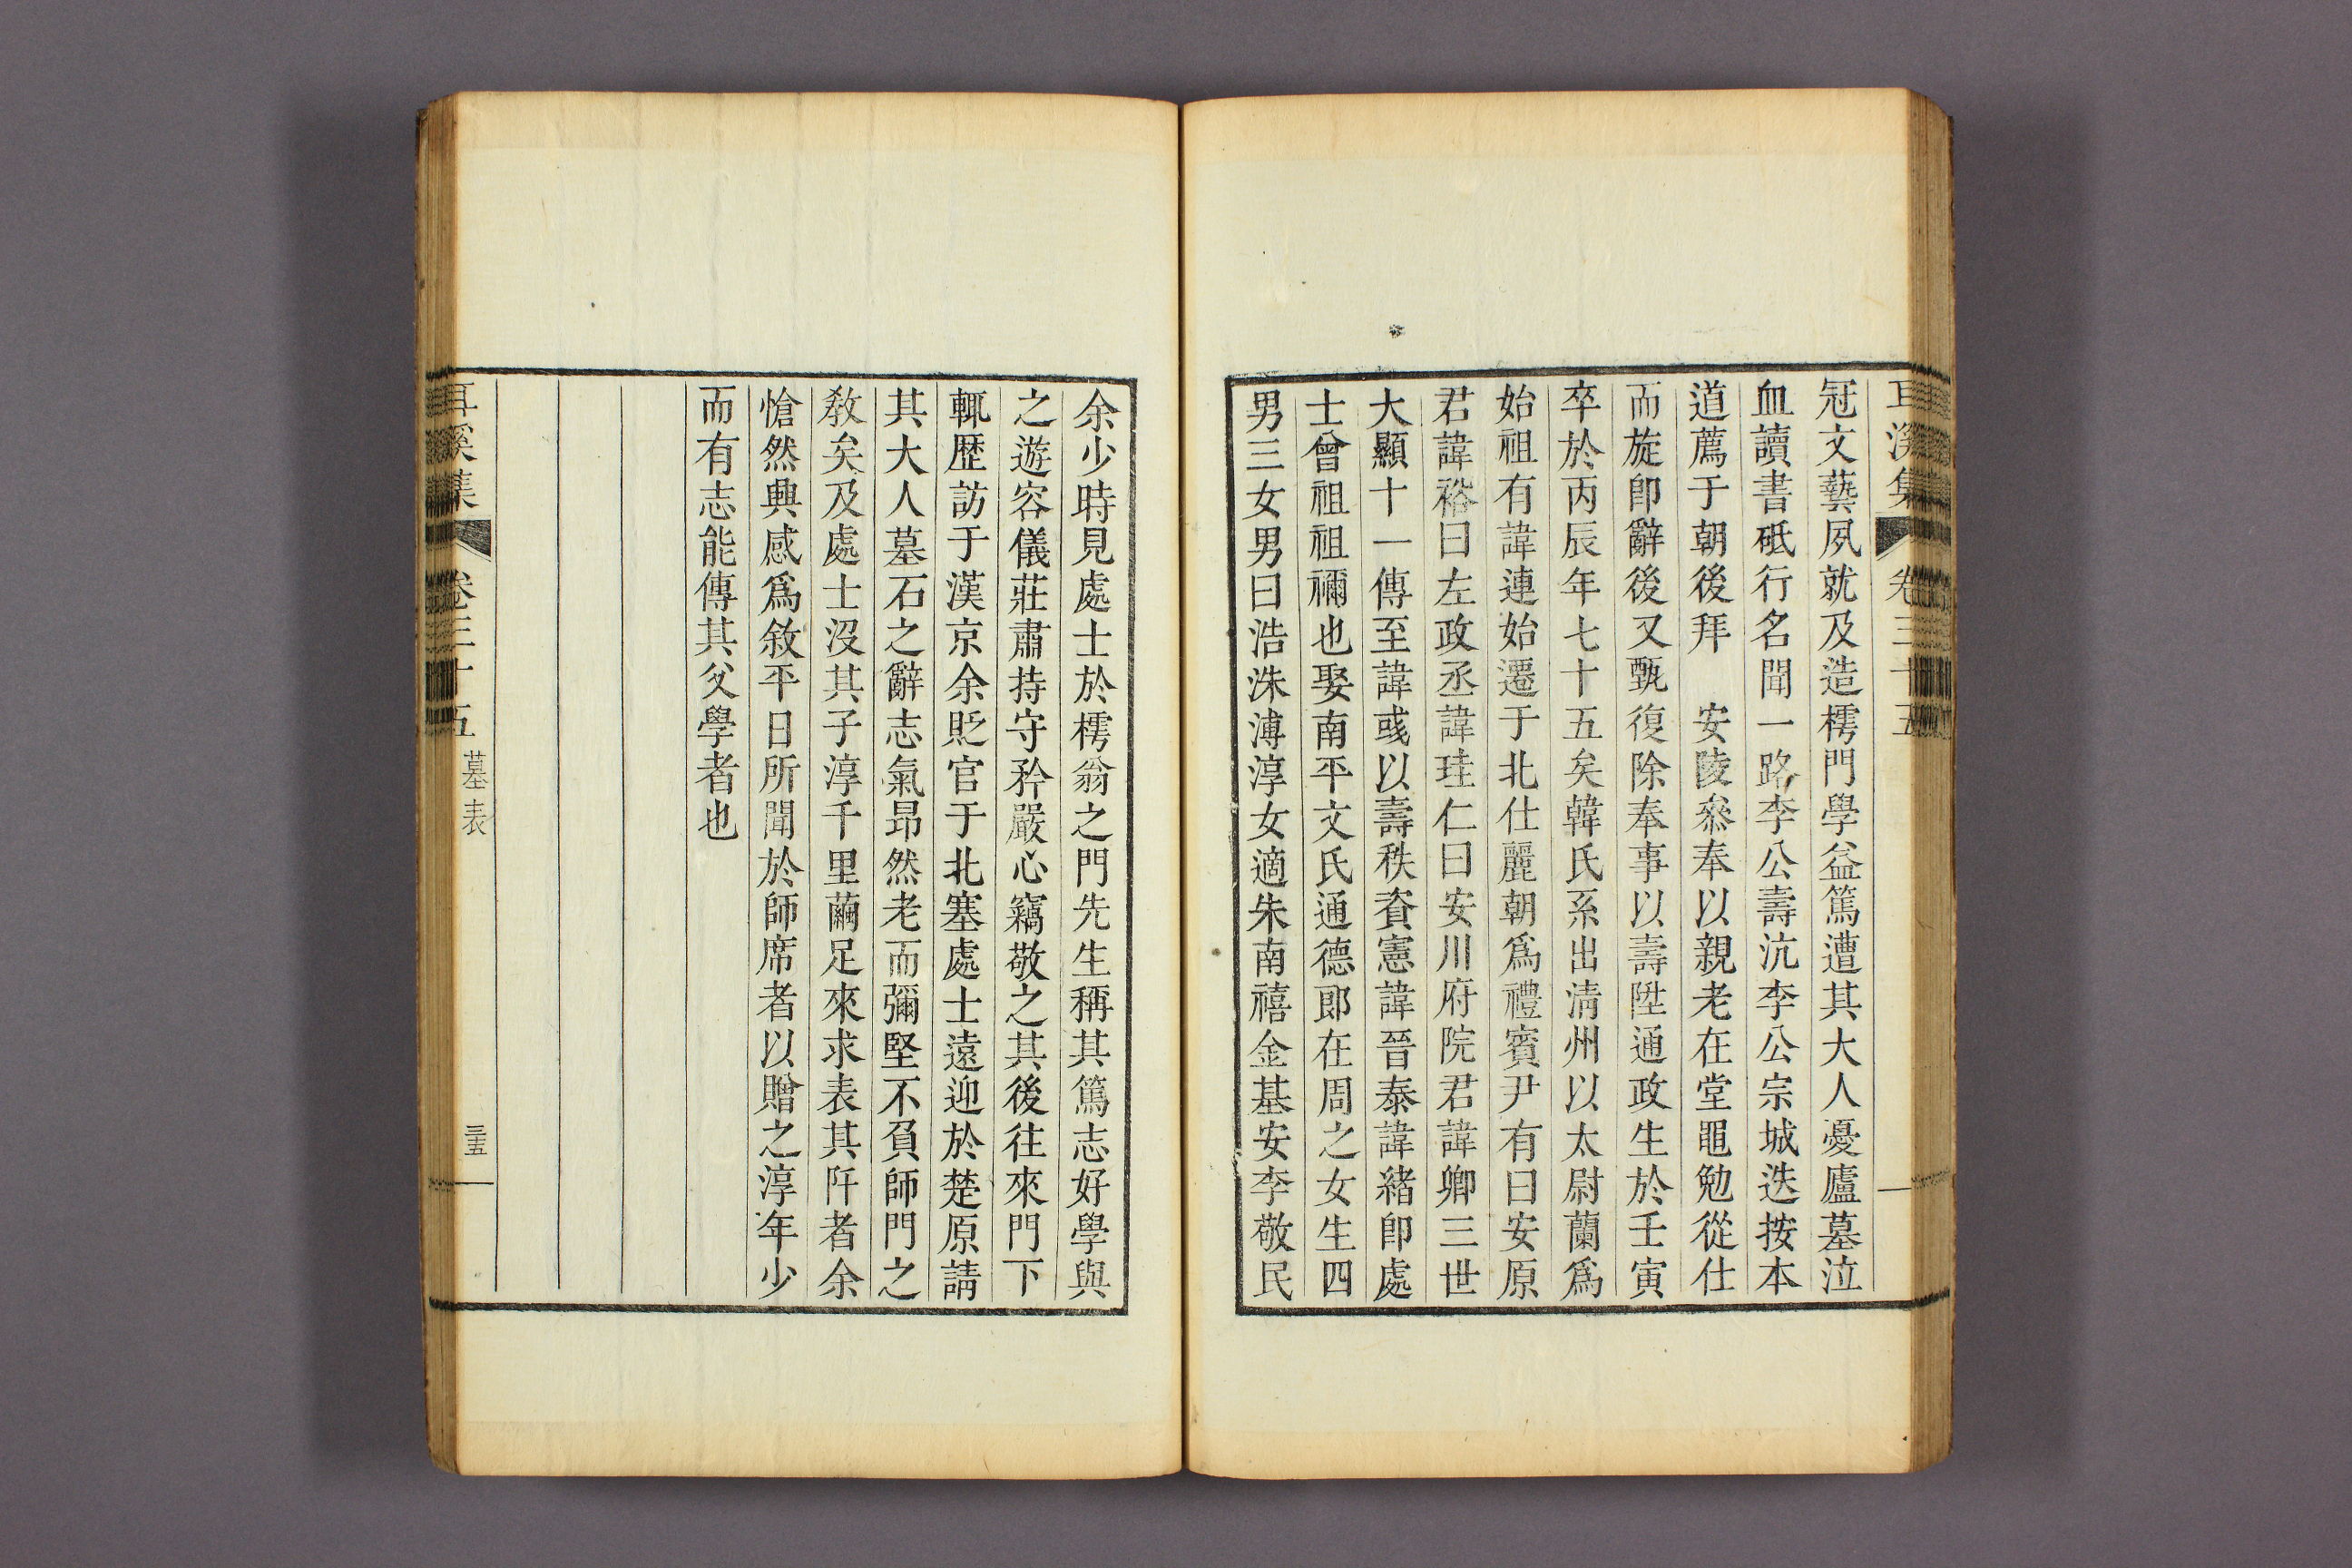 耳溪集 卷三十五
冠文藝夙就及造樗門學益篤遭其大人憂廬墓泣
血讀書砥行名聞一路李公壽沆李公宗城迭按本
道薦于朝後拜 安陵叅奉以親老在堂黽勉從仕
而旋卽辭後又甄復除奉事以壽陞通政生於壬寅
卒於丙辰年七十五矣韓氏系出淸州以太尉蘭爲
始祖有諱連始遷于北仕麗朝爲禮賓尹有曰安原
君諱裕曰左政丞諱珪仁曰安川府院君諱卿三世
大顯十一傳至諱彧以壽秩資憲諱晉泰諱緖卽處
士曾祖祖禰也娶南平文氏通德郞在周之女生四
男三女男曰浩洙溥淳女適朱南禧金基安李敬民
余少時見處士於樗翁之門先生稱其篤志好學與
之遊容儀莊肅持守矜嚴心竊敬之其後往來門下
輒歷訪于漢京余貶官于北塞處士遠迎於楚原請
其大人墓石之辭志氣昂然老而彌堅不負師門之
敎矣及處士沒其子淳千里繭足來求表其阡者余
愴然興感爲敘平日所聞於師席者以贈之淳年少
而有志能傳其父學者也
耳溪集 卷三十五 墓表 三五